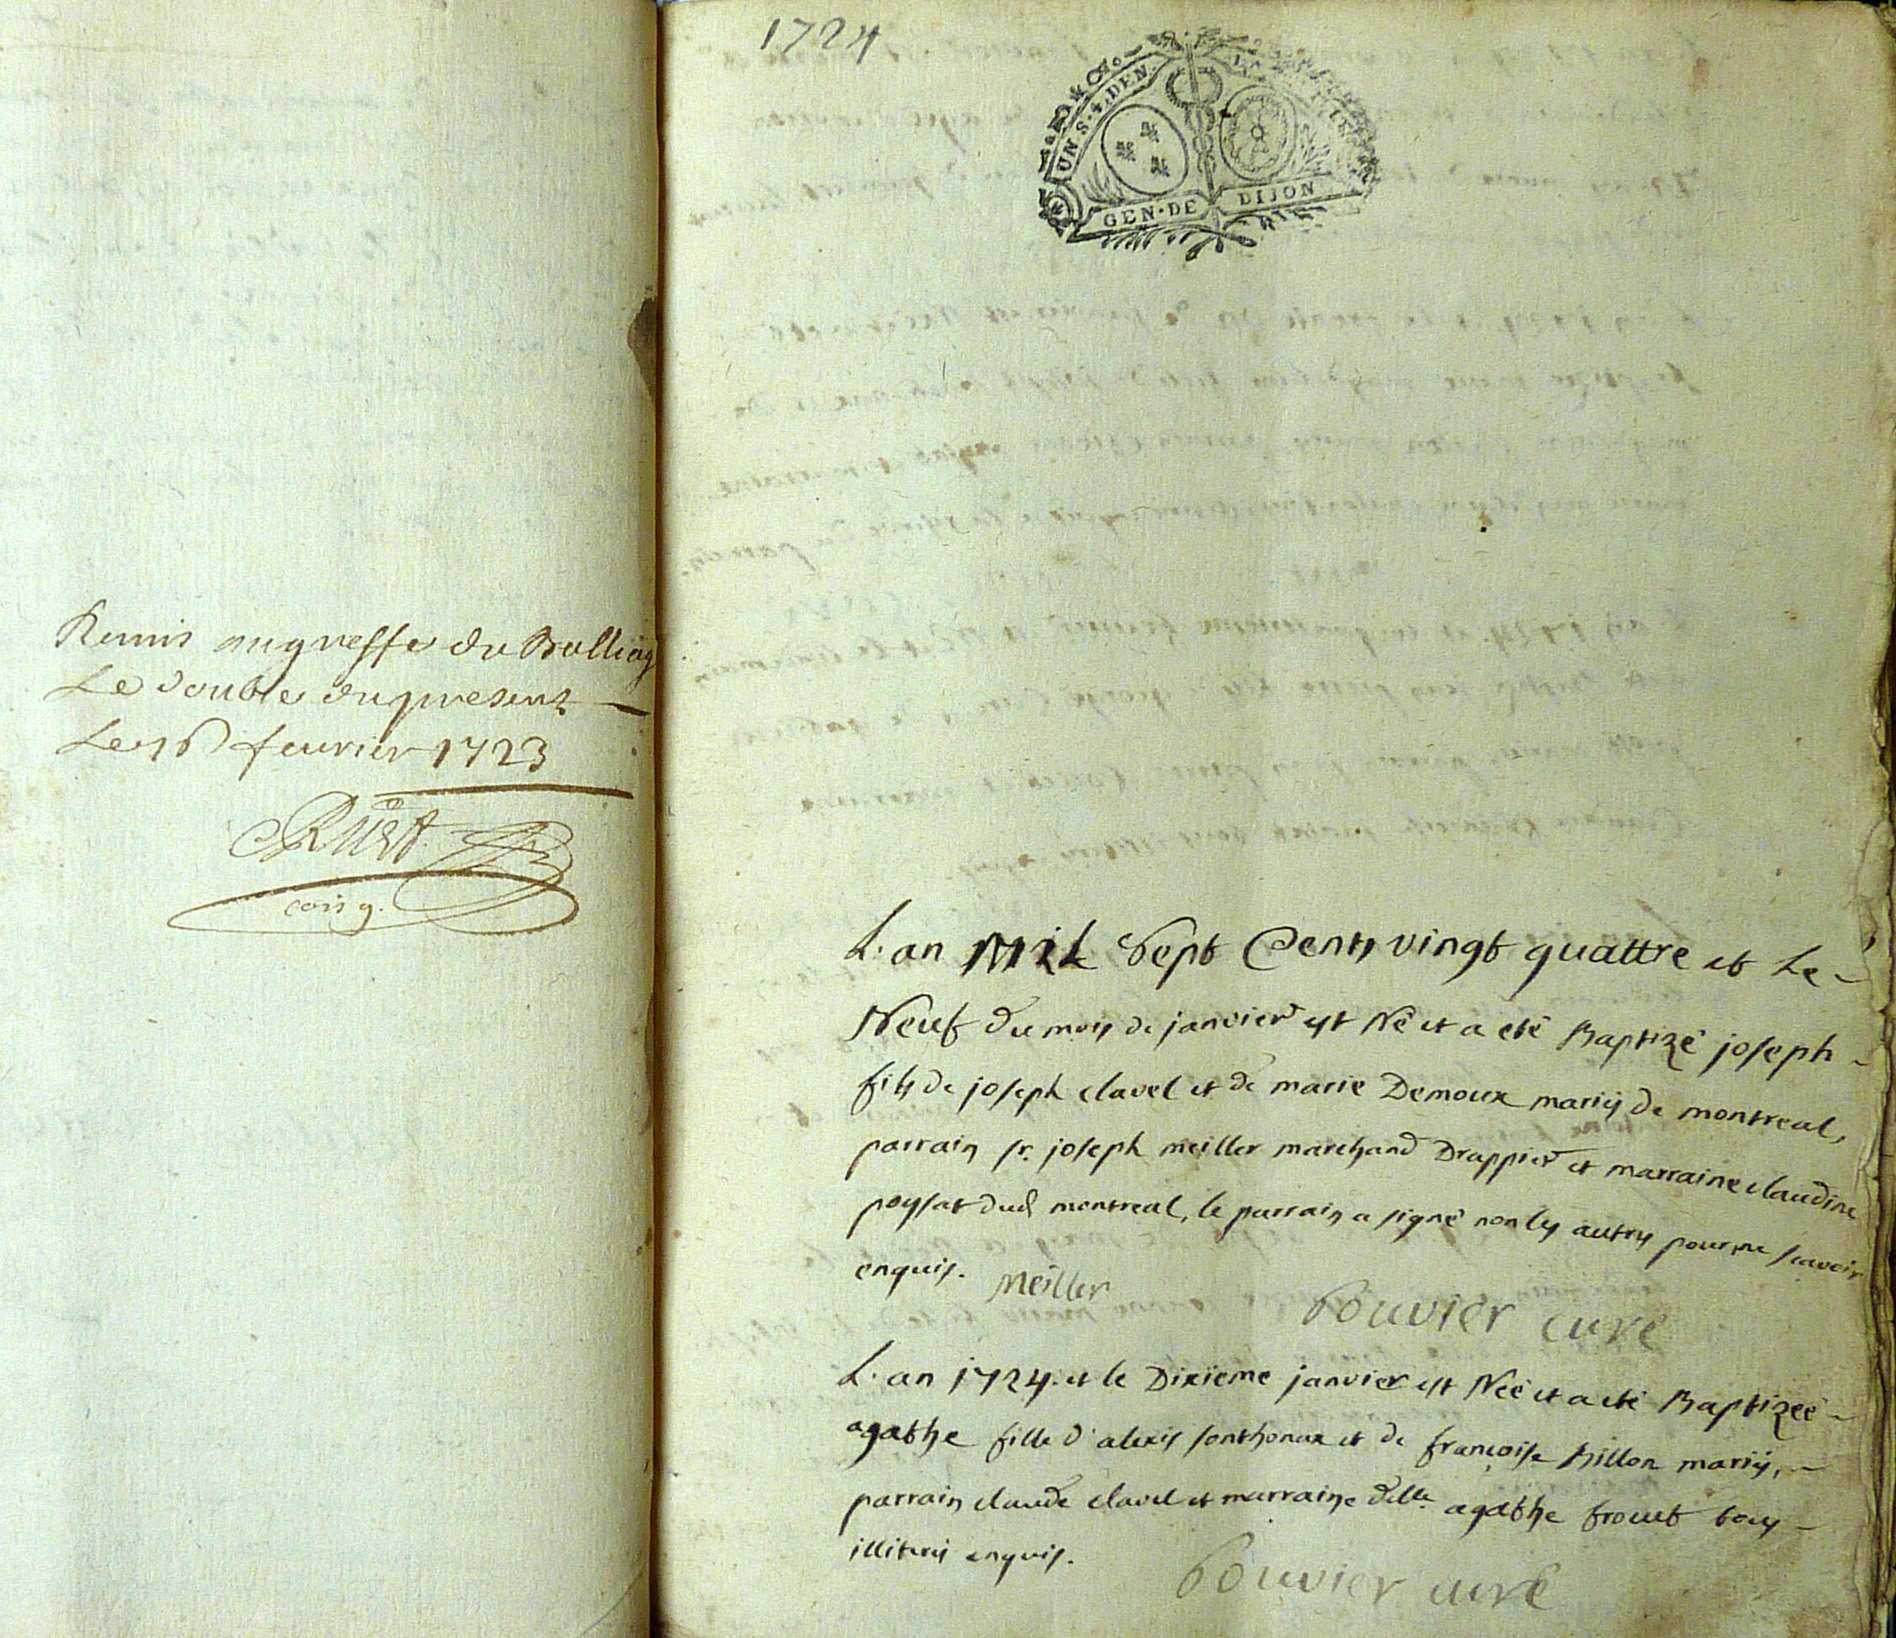 Remis augreffe du Balliag
Le double dupresent
Le 16 feurier 1723
Ruet
com g.
1724
UN S. 4. DEN.
GEN. DE DIJON
L'an Mil sept Cents vingt quattre et Le
Neuf du mois de janvier est Né et a eté Baptizé joseph
fils de joseph clavel et de marie Demoux mariés de montreal,
parrain sr. joseph meiller marchand Drappier et marraine claudine
poysat dud montreal, le parrain a signé non les autres pour ne scavoir
enquis. Meiller
Bouvier curé
L'an 1724. et le Dixieme janvier est Néé et a eté Baptizéé
agathe fille d'alexis sonthonax et de françoise hillon mariés,
parrain claude clavel et marraine delle. agathe frouct tous
illiterés enquis.
Bouvier curé